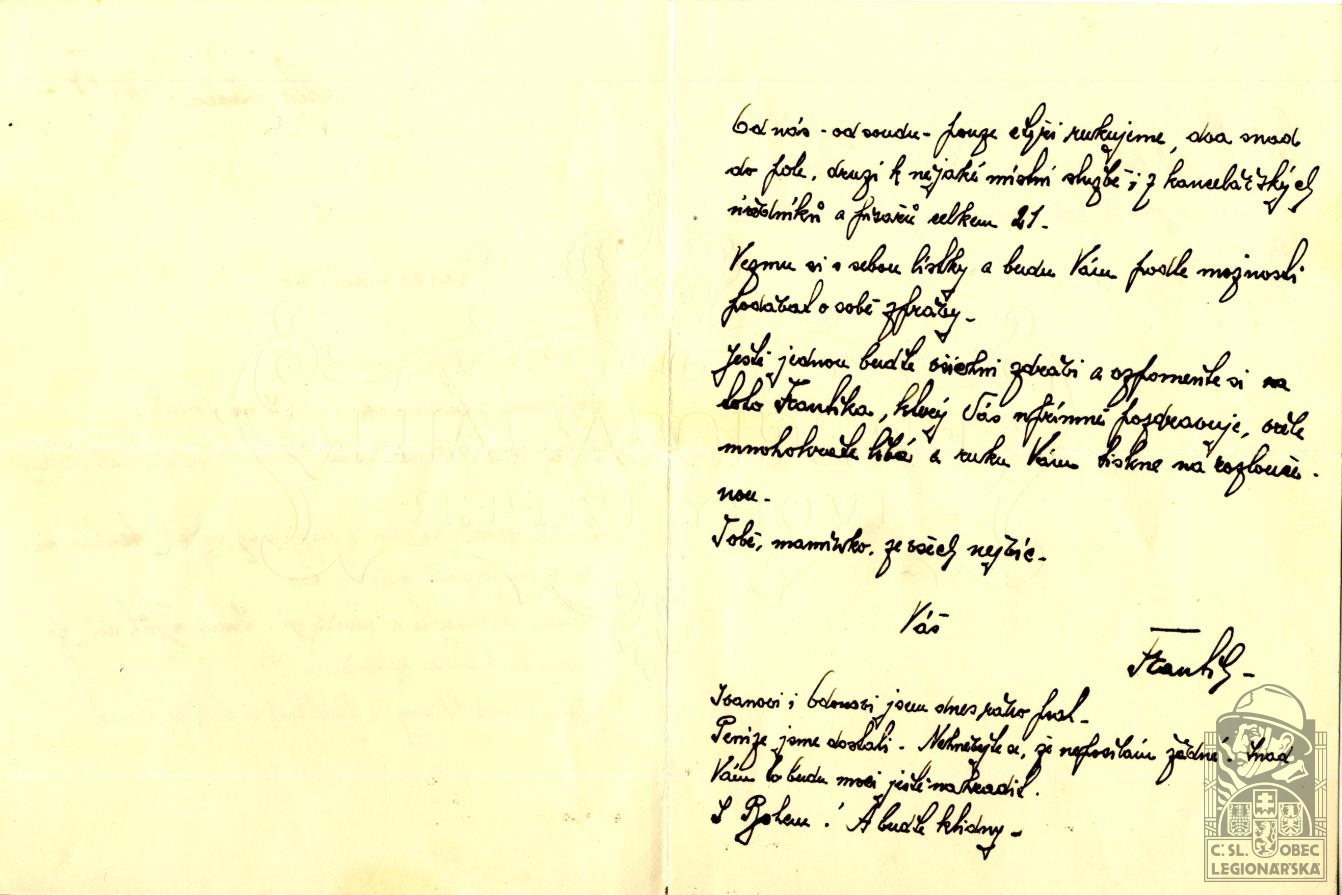 Od nás - od soudu - pouze čtyři rukujeme, dva snad
do pole, druzí k nějaké místní službě i z kancelářských
úředníků a písařů celkem 21.
Vezmu si s sebou lístky a budu Vám podle možnosti
podávat o sobě zprávy.
Ještě jednou buďte všichni zdrávi a vzpomeňte si na
toto Frantíka, který Vás upřímně pozdravuje, vřele
mnohokráte líbá a ruku Vám tiskne na rozlouče-
nou.
Tobě, maminko, ze všech nejvíc.
Váš
Frantík
Ivanovi i Edonovi jsem dnes ráno psal.
Peníze jsme dostali. Nehněvejte se, že neposílám žádné. Snad
Vám to budu moci ještě nahradit.
S Bohem! A buďte klidny.
Č. SL. OBEC
LEGIONÁŘSKÁ